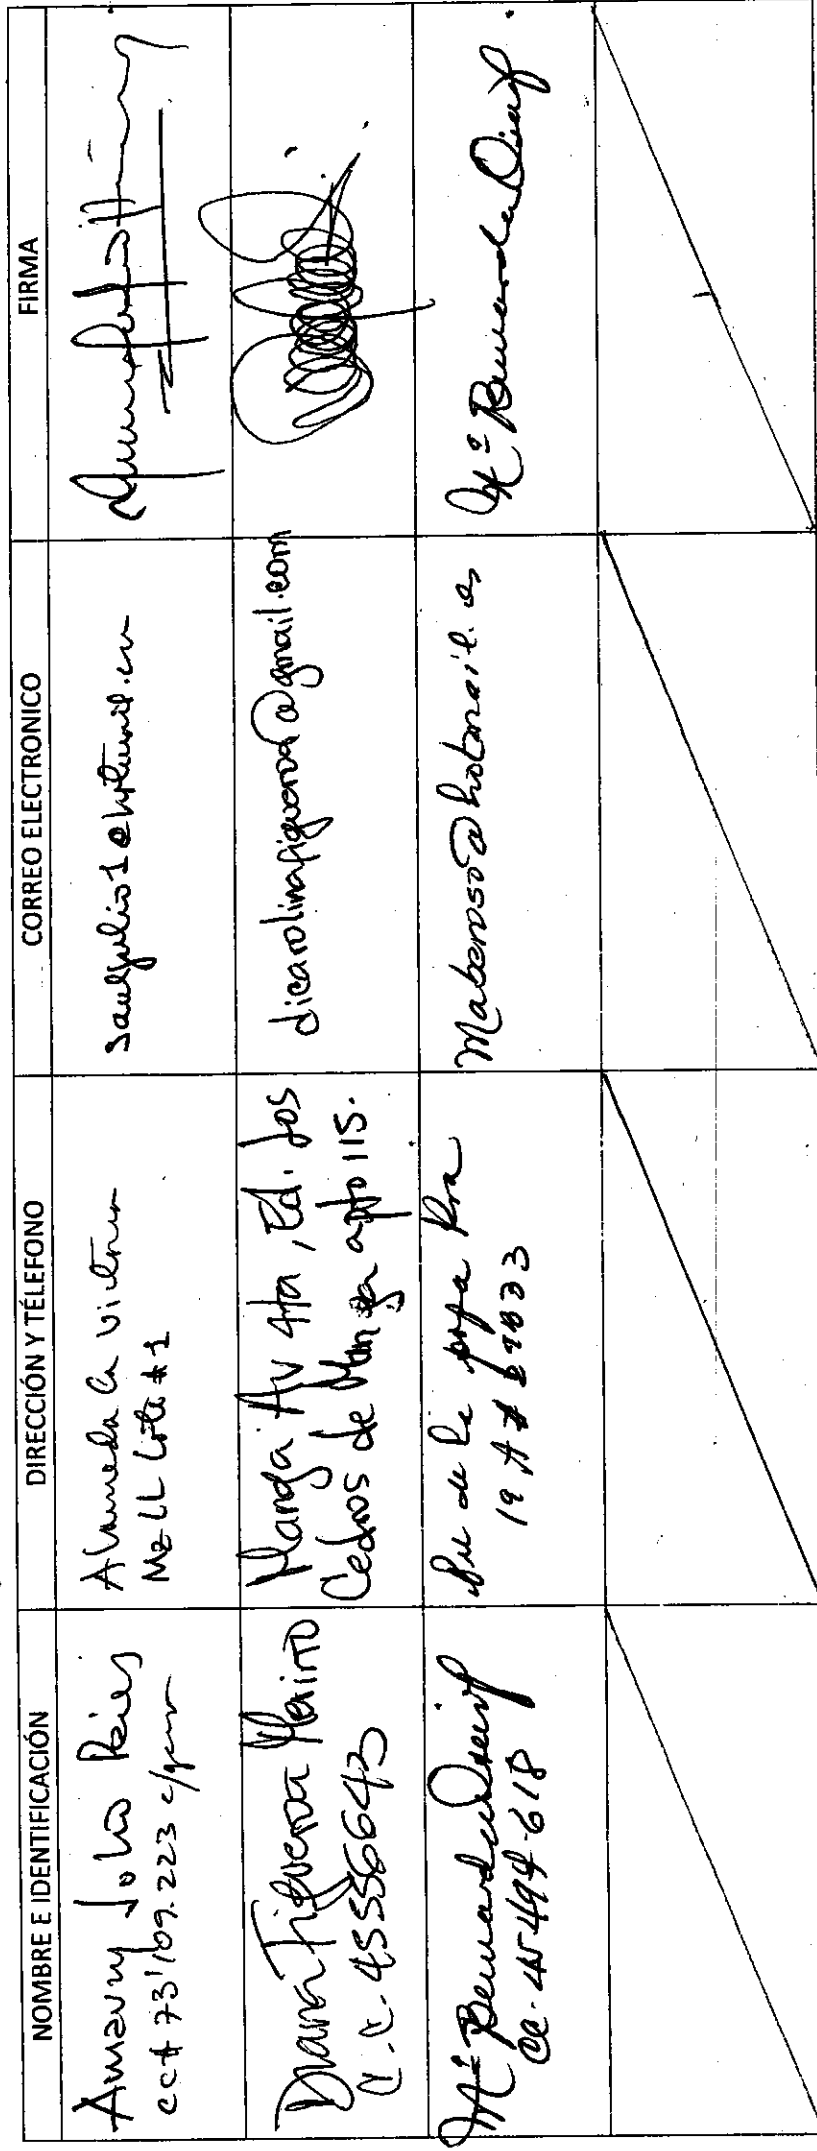 NOMBRE E IDENTIFICACIÓN
DIRECCIÓN Y TÉLEFONO
CORREO ELECTRONICO
FIRMA
Amaury Julio
cc# 73'109.223 c/gena
Alameda la victoria
Mz LL Lote #1
Diana Figueroa Merino
C.C. 45556643
Manga Av 4ta, Ed. Los
Cedros de Manga apto 115.
dicarolinafigueroa@gmail.com
Mª Bernarda
CC. 45-494-618
de la popa
19 A #
Maberoso@hotmail.es
Mª Bernarda